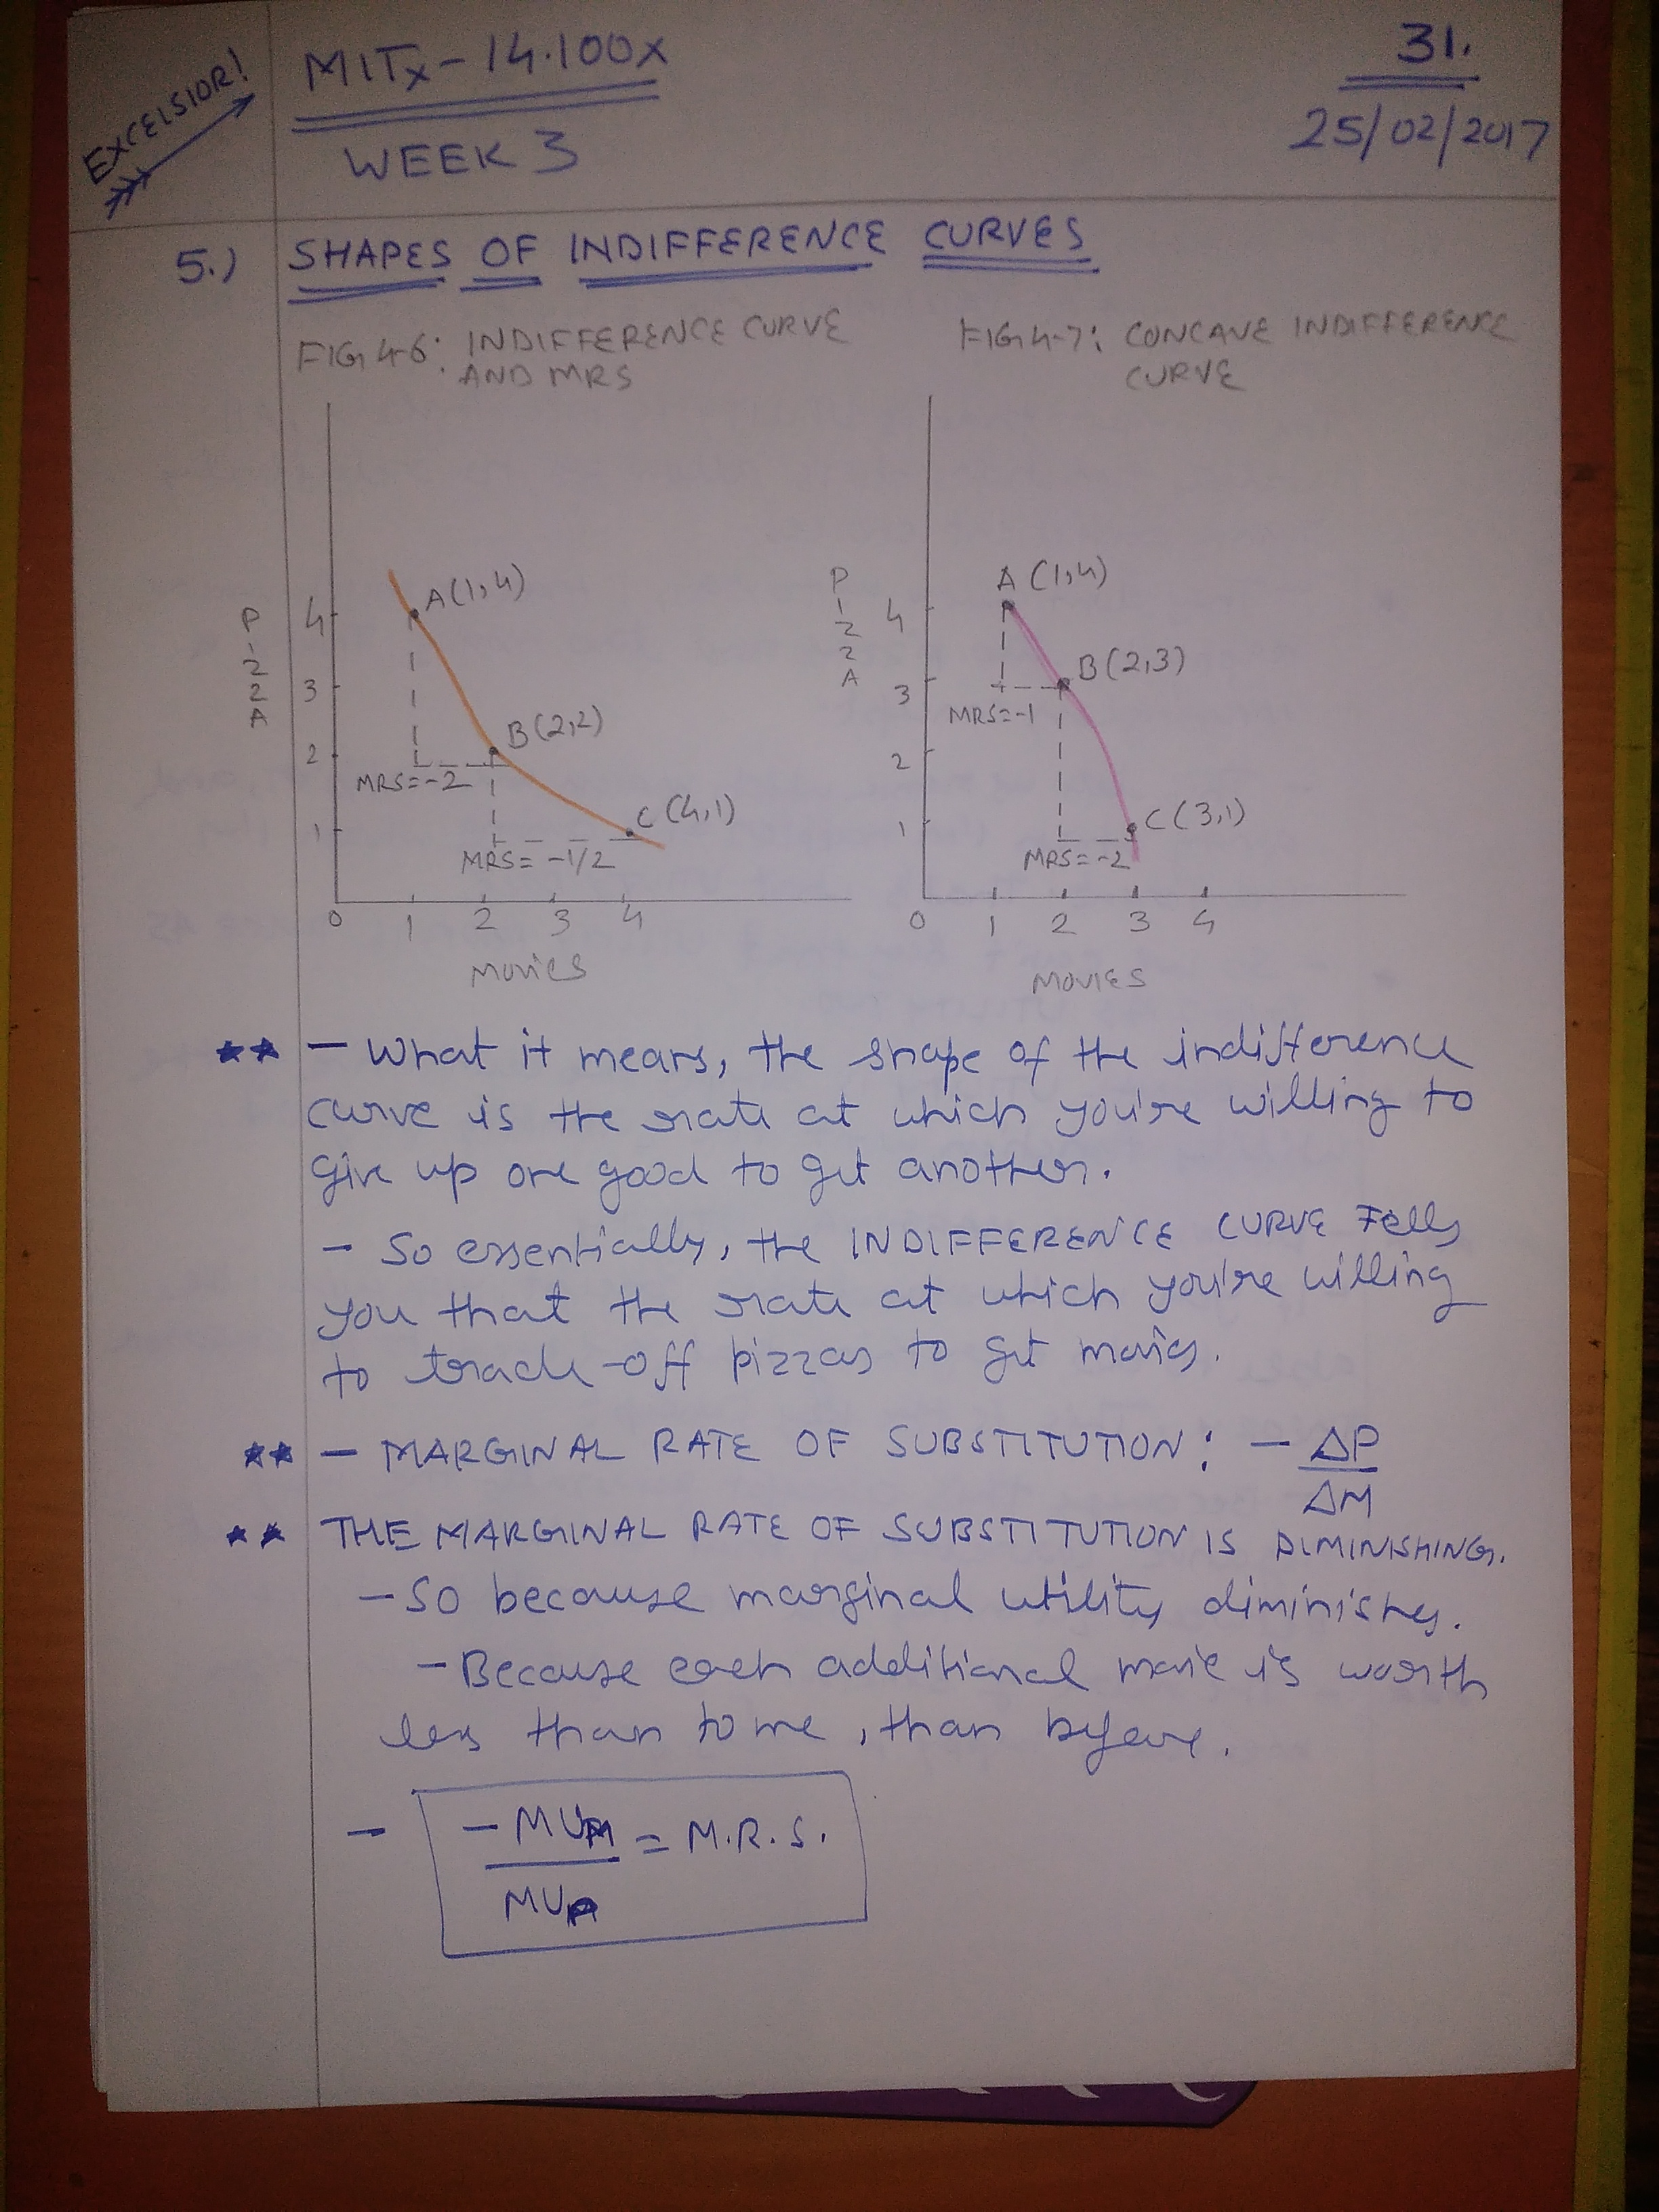 EXCELSIOR!
MITx - 14.100x
WEEK 3
31.
25/02/2017
5.) SHAPES OF INDIFFERENCE CURVES
FIG 4-6: INDIFFERENCE CURVE
AND MRS
FIG 4-7: CONCAVE INDIFFERENCE
CURVE
PIZZA
4
3
2
1
0
1 2 3 4
MOVIES
A(1,4)
B(2,2)
C(4,1)
MRS=-2
MRS= -1/2
PIZZA
4
3
2
1
0
1 2 3 4
MOVIES
A (1,4)
B(2,3)
C(3,1)
MRS=-1
MRS=-2
★★ - What it means, the shape of the indifference
curve is the rate at which you're willing to
give up one good to get another.
- So essentially, the INDIFFERENCE CURVE Tells
you that the rate at which you're willing
to trade-off pizzas to get movies.
★★ - MARGINAL RATE OF SUBSTITUTION: - ΔP
ΔM
★★ THE MARGINAL RATE OF SUBSTITUTION IS DIMINISHING.
- So because marginal utility diminishes.
- Because each additional movie is worth
less than to me, than before.
- -MUM = M.R.S.
MUP